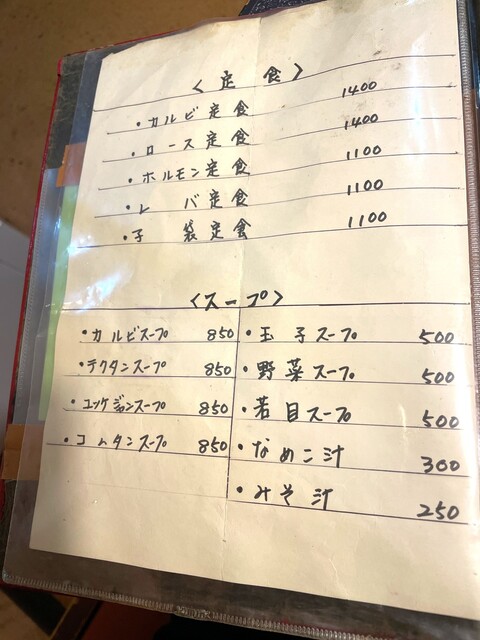 〈定食〉
・カルビ定食 1400
・ロース定食 1400
・ホルモン定食 1100
・レバ定食 1100
・子袋定食 1100
〈スープ〉
・カルビスープ 850
・テクタンスープ 850
・ユッケジャンスープ 850
・コムタンスープ 850
・玉子スープ 500
・野菜スープ 500
・若目スープ 500
・なめこ汁 300
・みそ汁 250